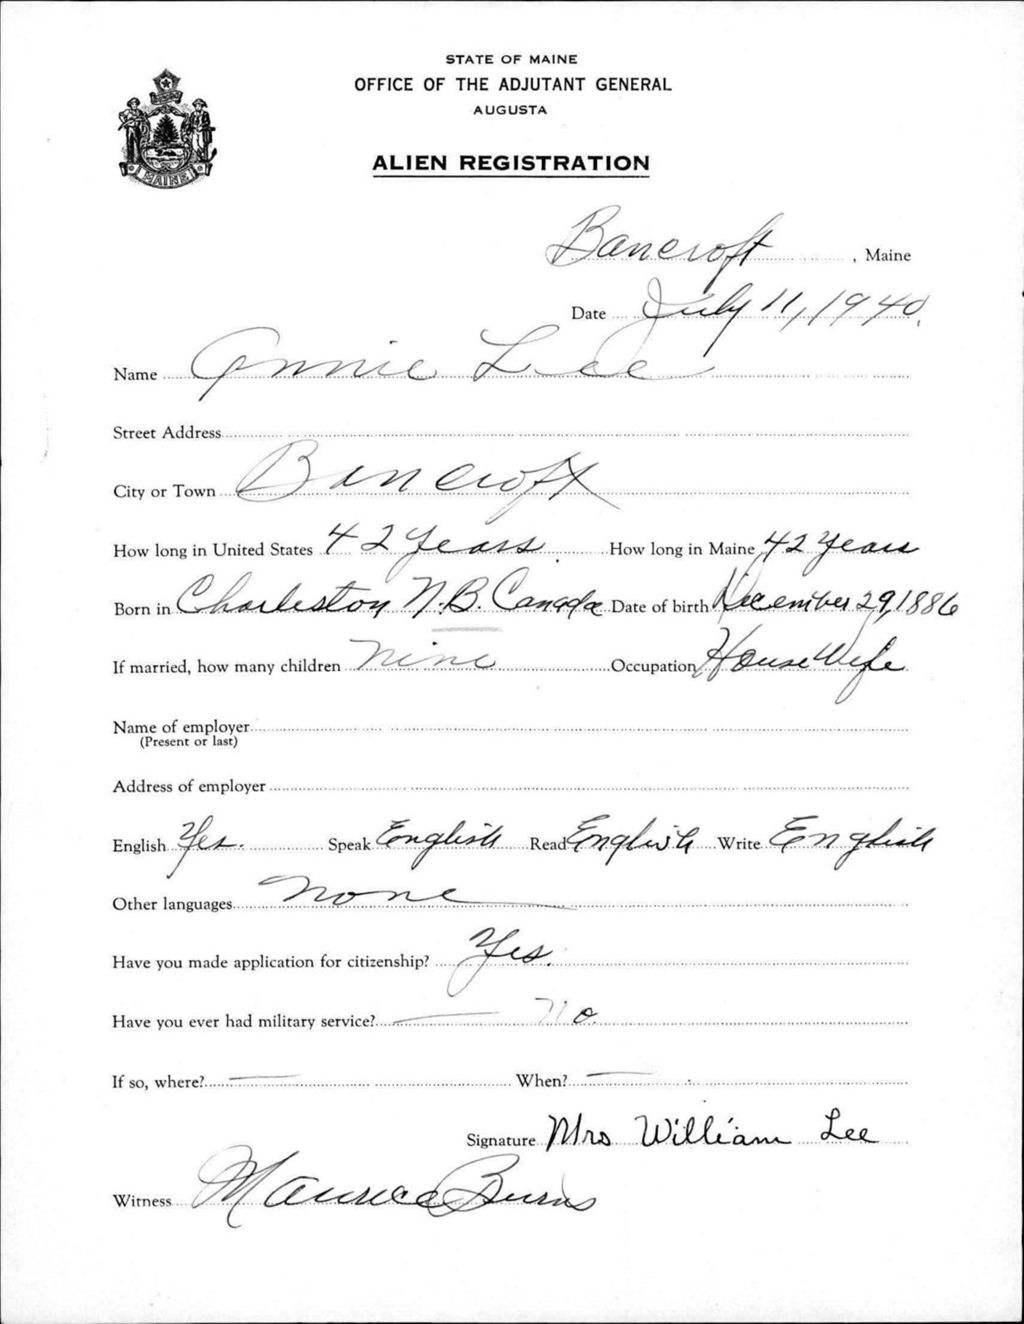 STATE OF MAINE
OFFICE OF THE ADJUTANT GENERAL
AUGUSTA
ALIEN REGISTRATION
MAINE
Bancroft, Maine
Date July 11, 1940
Name Annie Lee
Street Address
City or Town Bancroft
How long in United States 42 Years How long in Maine 42 Years
Born in Charleston N.B. Canada Date of birth December 29, 1886
If married, how many children Nine Occupation House Wife
Name of employer
(Present or last)
Address of employer
English Yes. Speak English Read English Write English
Other languages None
Have you made application for citizenship? Yes.
Have you ever had military service? — No.
If so, where? — When? —
Signature Mrs William Lee
Witness Maurice Burns